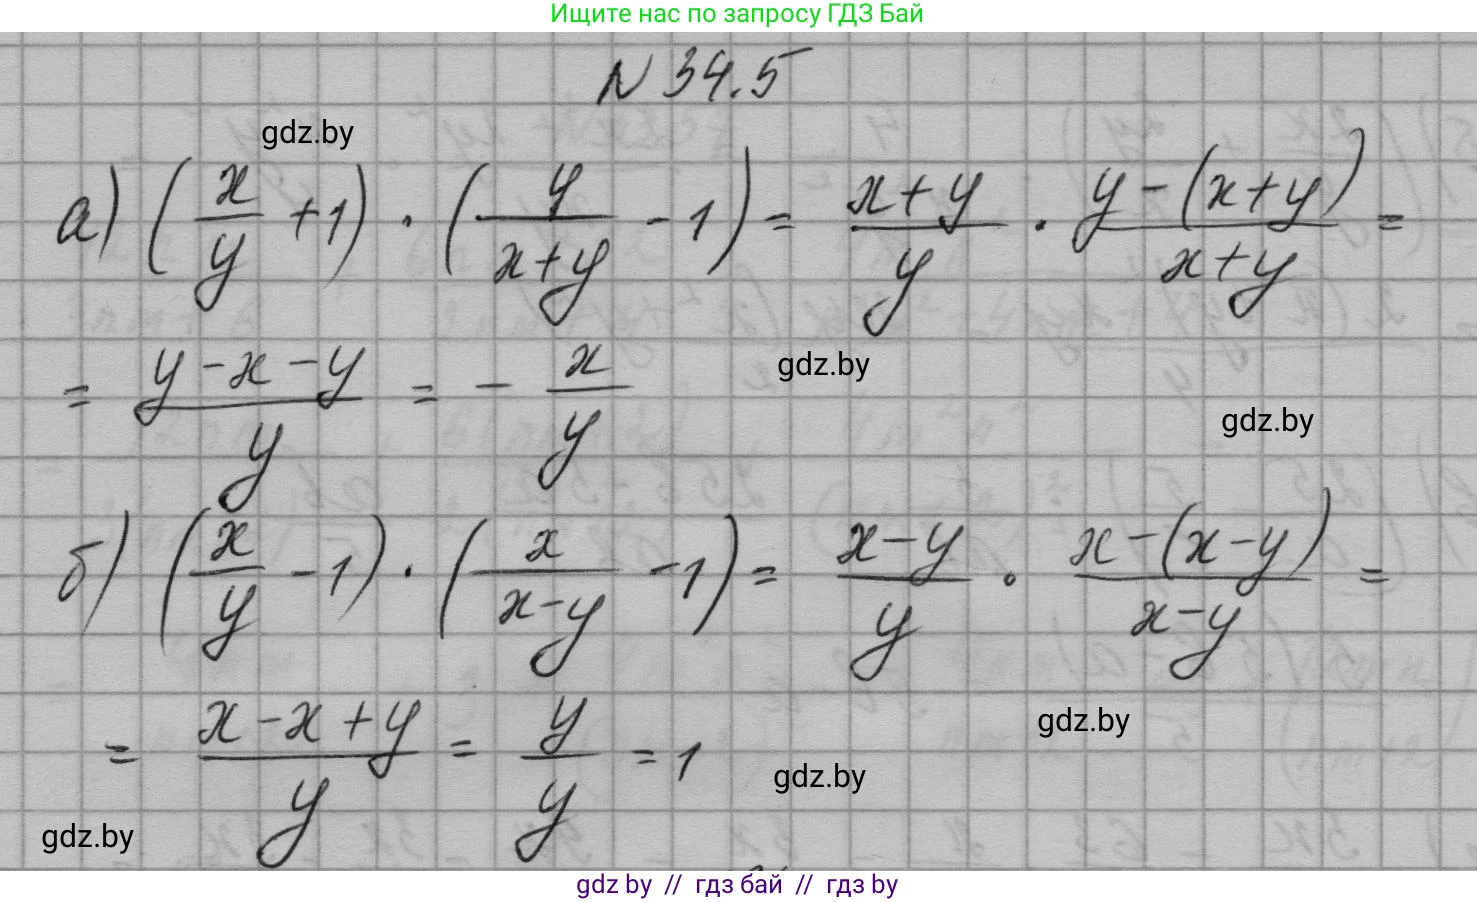 Ищите нас по запросу ГДЗ Бай
N 34.5
gdz.by
а) (x/y + 1) · (y/(x+y) - 1) = (x+y)/y · (y-(x+y))/(x+y) =
= (y-x-y)/y = - x/y
gdz.by
gdz.by
б) (x/y - 1) · (x/(x-y) - 1) = (x-y)/y · (x-(x-y))/(x-y) =
= (x-x+y)/y = y/y = 1
gdz.by
gdz.by
gdz.by
gdz by // гдз бай // гдз by